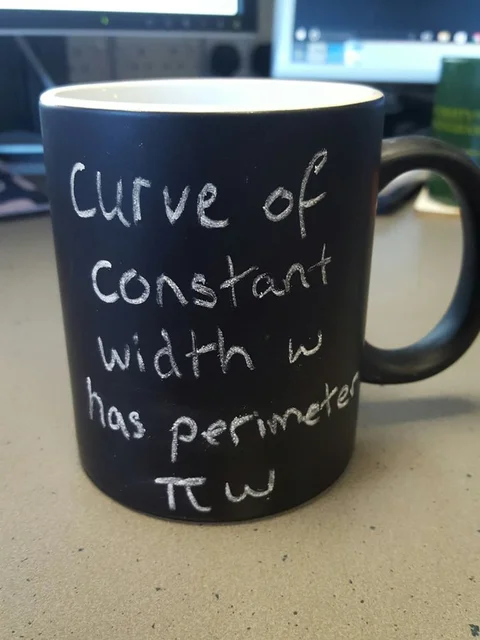 curve of
constant
width w
has perimeter
π w